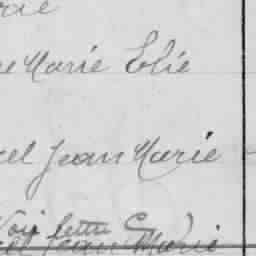 Marie Elie
el Jean Marie
Voir lettre C
el Jean Marie